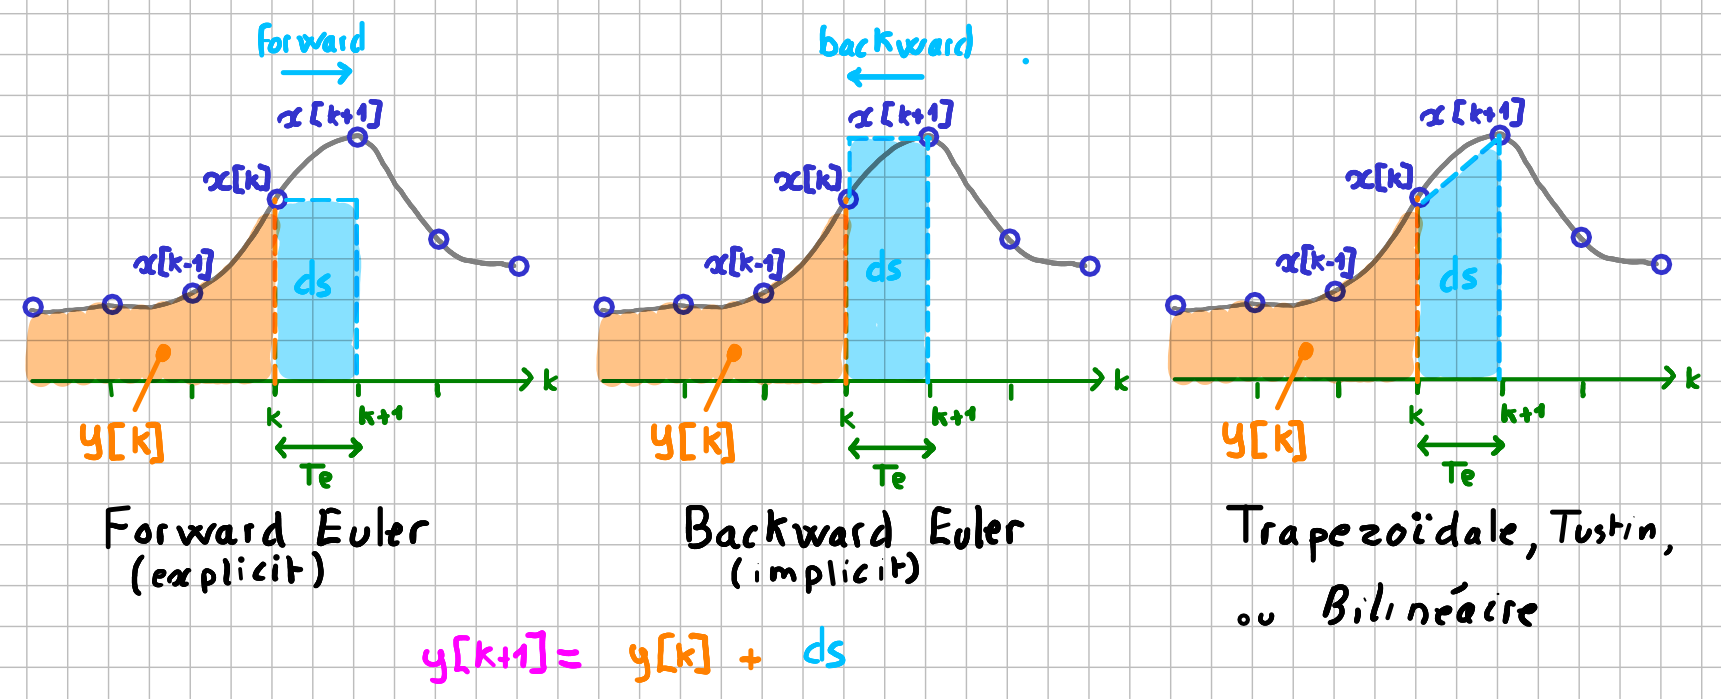 forward
x[k+1]
x[k]
x[k-1]
ds
k
k
k+1
y[k]
Te
Forward Euler
(explicit)
backward
x[k+1]
x[k]
x[k-1]
ds
k
k
k+1
y[k]
Te
Backward Euler
(implicit)
x[k+1]
x[k]
x[k-1]
ds
k
k
k+1
y[k]
Te
Trapezoïdale, Tustin,
ou Bilinéaire
y[k+1] = y[k] + ds